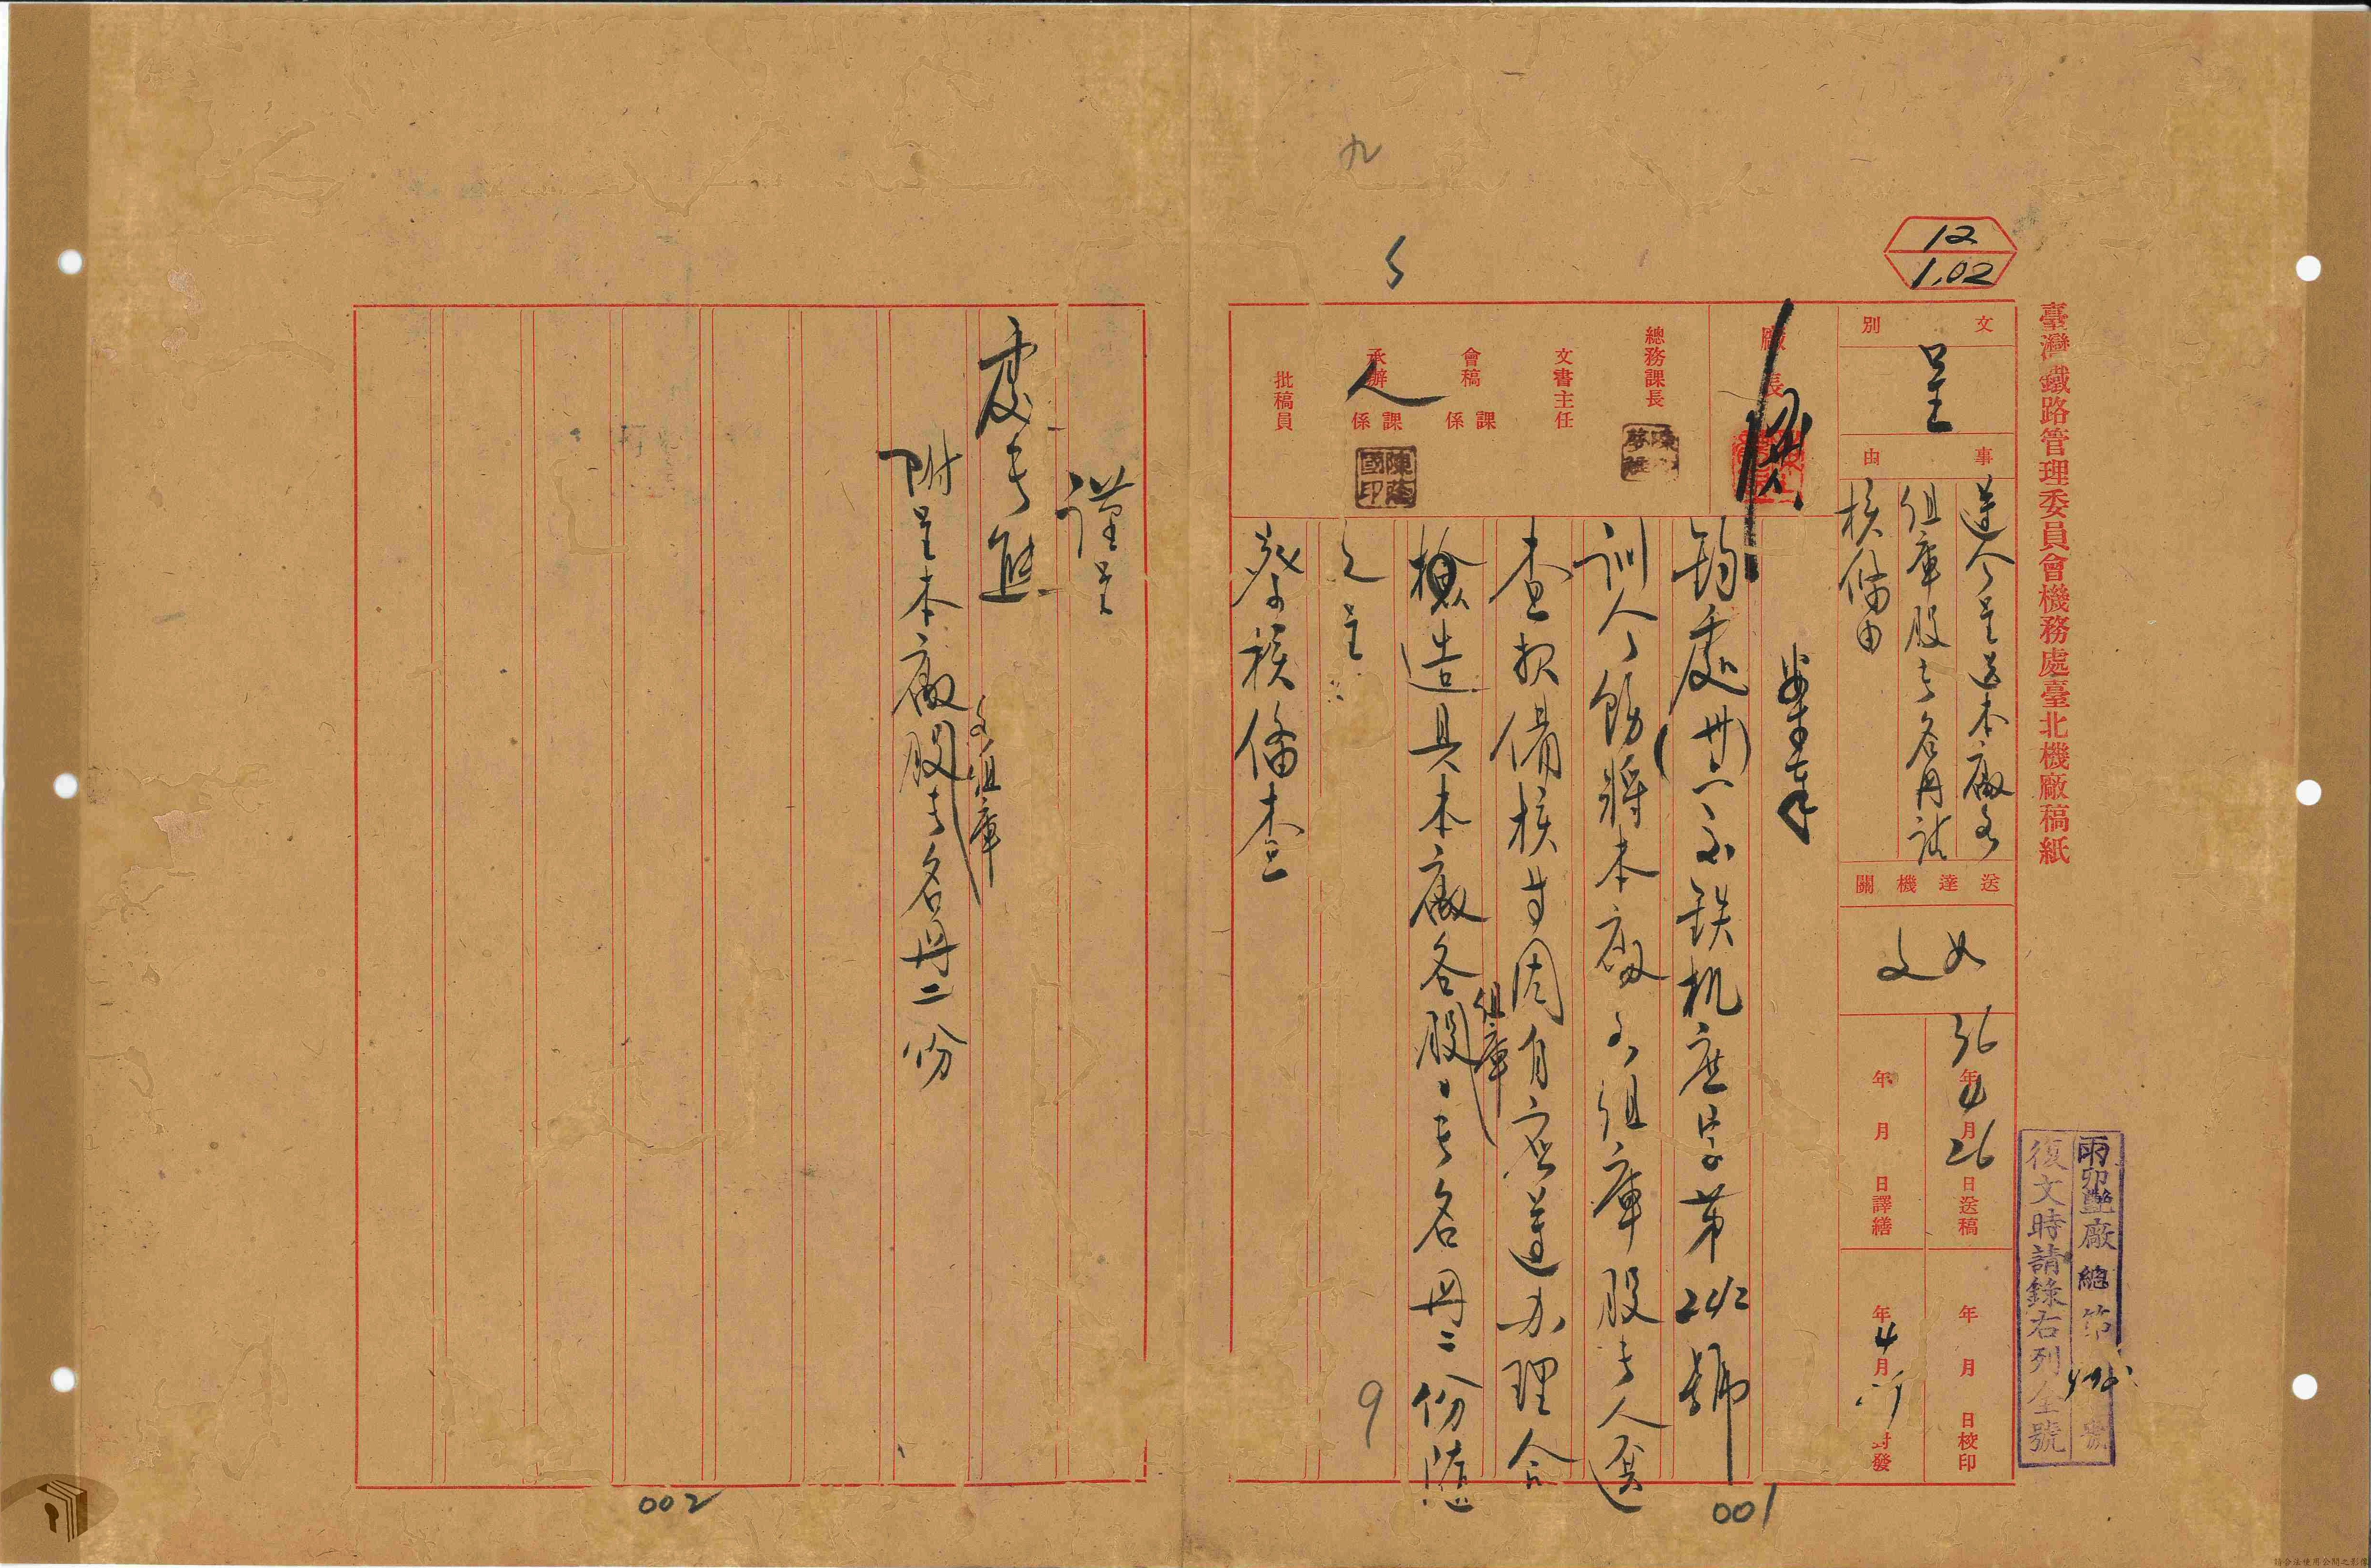 臺灣鐵路管理委員會機務處臺北機廠稿紙
12
1.02
文別
呈
事由
遵令呈送本廠各
組庫股長名冊請
核備由
送達機關
如文
36年4月26日送稿
年月日譯繕
年月日校印
年4月 封發
雨卯豔廠總第 號
復文時請錄右列全號
廠長
總務課長
文書主任
會稿 課係
承辦 課係
批稿員
陳蔭國印
案奉
鈞處(卅六)鉄机庶字第242號
訓令飭將本廠各組庫股長人選
查報備核等因自应遵办理合
檢造具本廠各股長名冊二份隨
組庫
文呈
察核備查
謹呈
處長熊
附呈本廠股長名冊二份
各組庫
九
5
9
001
002